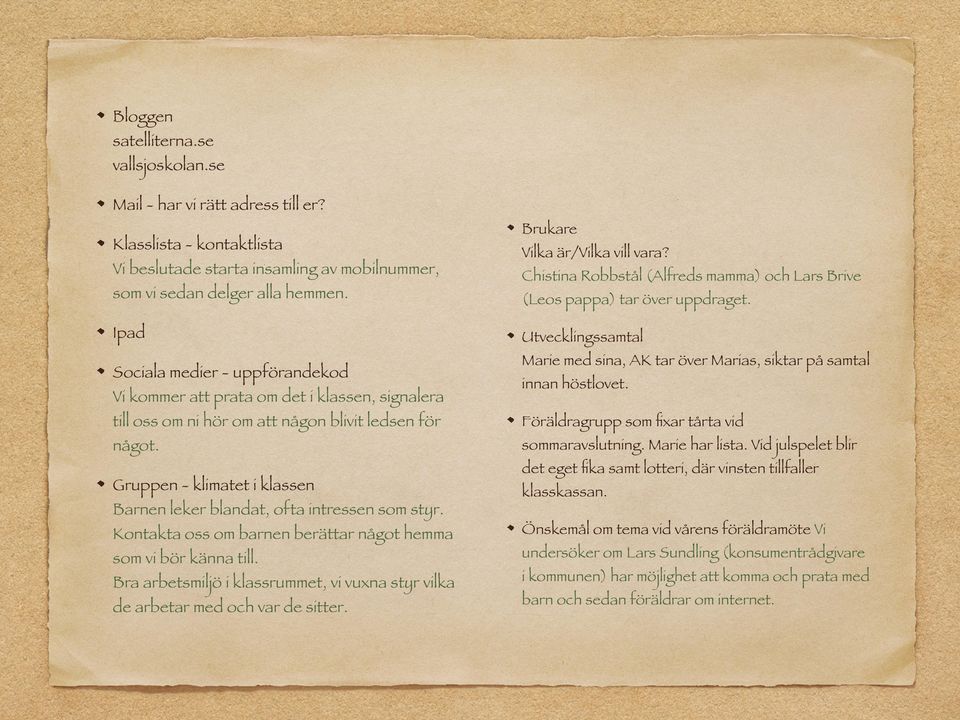 Bloggen
satelliterna.se
vallsjoskolan.se
Mail - har vi rätt adress till er?
Klasslista - kontaktlista
Vi beslutade starta insamling av mobilnummer,
som vi sedan delger alla hemmen.
Ipad
Sociala medier - uppförandekod
Vi kommer att prata om det i klassen, signalera
till oss om ni hör om att någon blivit ledsen för
något.
Gruppen - klimatet i klassen
Barnen leker blandat, ofta intressen som styr.
Kontakta oss om barnen berättar något hemma
som vi bör känna till.
Bra arbetsmiljö i klassrummet, vi vuxna styr vilka
de arbetar med och var de sitter.
Brukare
Vilka är/Vilka vill vara?
Chistina Robbstål (Alfreds mamma) och Lars Brive
(Leos pappa) tar över uppdraget.
Utvecklingssamtal
Marie med sina, AK tar över Marias, siktar på samtal
innan höstlovet.
Föräldragrupp som fixar tårta vid
sommaravslutning. Marie har lista. Vid julspelet blir
det eget fika samt lotteri, där vinsten tillfaller
klasskassan.
Önskemål om tema vid vårens föräldramöte Vi
undersöker om Lars Sundling (konsumentrådgivare
i kommunen) har möjlighet att komma och prata med
barn och sedan föräldrar om internet.